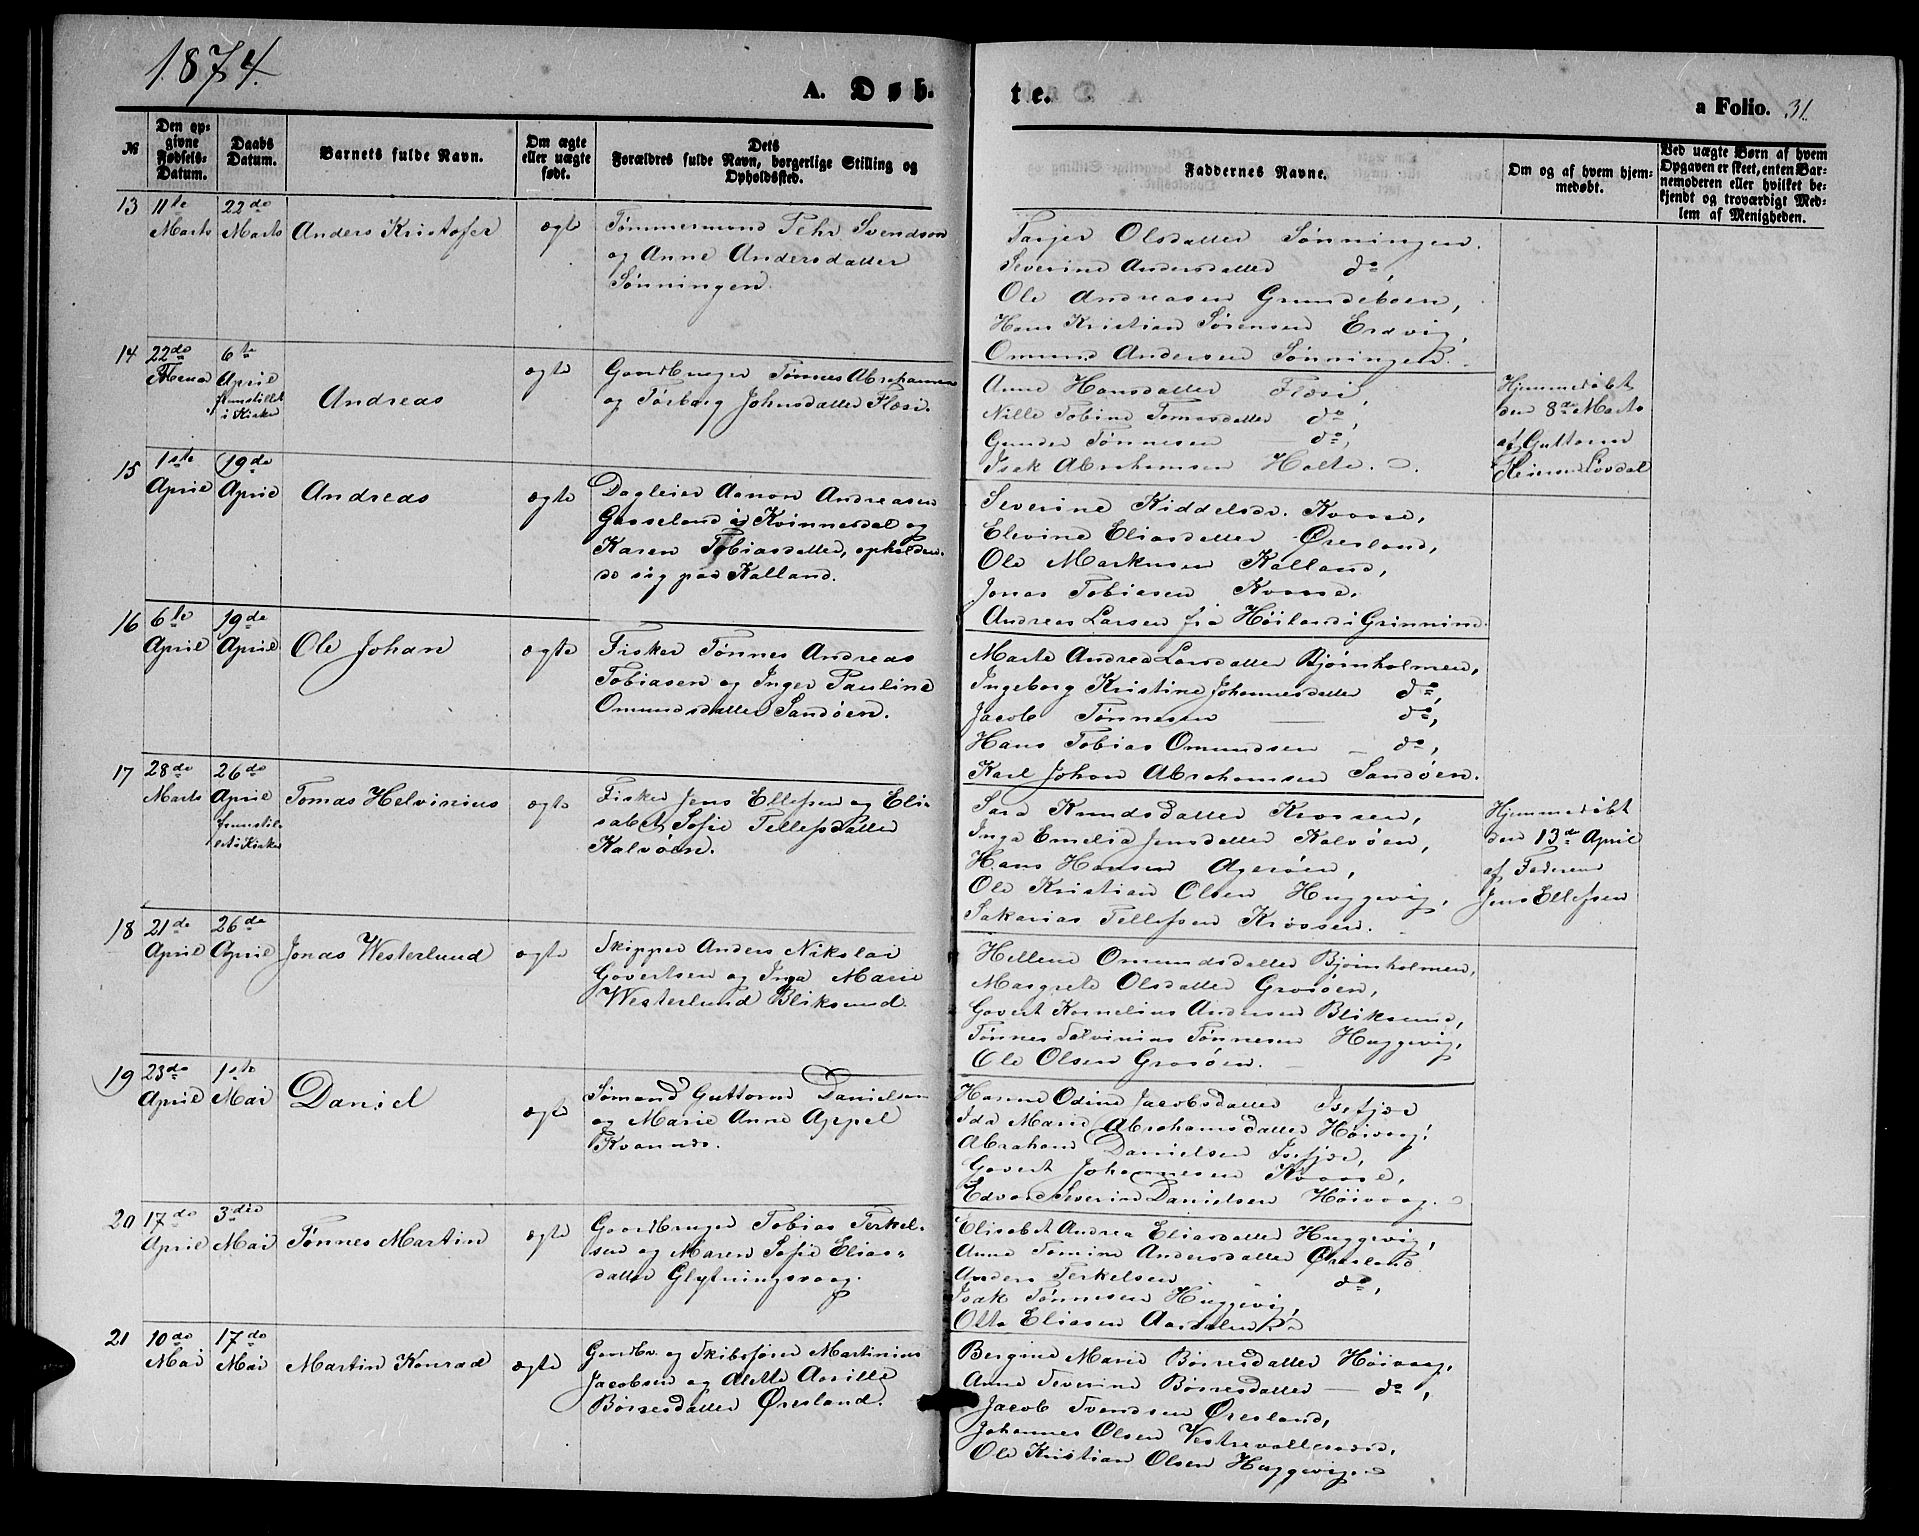 1874.
A. Døb-
te.
a Folio. 31.
№
Den op-
givne
Fødsels-
Datum.
Daabs
Datum.
Barnets fulde Navn.
Om ægte
eller uægte
født.
Dets
Forældres fulde Navn, borgerlige Stilling og
Opholdssted.
Faddernes Navne.
Om og af hvem hjem-
medøbt.
Ved uægte Børn af hvem
Opgaven er skeet, enten Bar-
nemoderen eller hvilket be-
kjendt og troværdigt Med-
lem af Menigheden.
13
11te
Marts
22de
Marts
Anders Kristofer
ægte
Tømmermand Svendsen
og Anne Andersdatter
Sønningen.
Olsdatter Sønningen.
Severine Andersdatter do,
Ole Andreasen
Hans Kristian Sørensen
Omund Andersen Sønningen.
14
22de
6te
April
fremstillet
i Kirke
Andreas
ægte
Gaardbruger Tønnes Abrahamsen
og Torborg Johnsdatter Flosi.
Anne Hansdatter Flosi,
Nille Tobine Tomasdatter do,
Gunder Tønnesen do,
Isak Abrahamsen Holte.
Hjemmedøbt
den 8de Marts
af Guttorm
15
1ste
April
19de
April
Andreas
ægte
Dagleier Aanon Andreasen
i Kvinnesdal og
Karen Tobiasdatter, ophølden-
de sig paa Kalland.
Severine Kiddelsdr. Kvaase,
Elevine Eliasdatter Øresland,
Ole Markusen Kalland,
Jonas Tobiasen Kvaase,
Andreas Larsen fra Høiland i
16
6te
April
19de
April
Ole Johan
ægte
Fisker Tønnes Andreas
Tobiasen og Inger Pauline
Omundsdatter Sandøen.
Marte Andrea Larsdatter Bjørnholmen,
Ingeborg Kristine Johannesdatter do,
Jacob Tønnesen do,
Hans Tobias Omundsen do,
Karl Johan Abrahamsen Sandøen.
17
28de
Marts
26de
April
fremstil-
let i Kirke
Tomas Helvinius
ægte
Fisker Jens Ellefsen og Eli-
sabet Sofie Tellefsdatter
Kalvøen.
Sara Knudsdatter Krossen,
Inga Emelia Jensdatter Kalvøen,
Hans Hansen Agerøen,
Ole Kristian Olsen Huggevig,
Sakarias Tellefsen Krossen.
Hjemmedøbt
den 13de April
af Faderen
Jens Ellefsen
18
21de
April
26de
April
Jonas Westerlund
ægte
Skipper Anders Nikolai
Govertsen og Inga Marie
Westerlund Bliksund.
Hellene Omundsdatter Bjørnholmen,
Margrete Olsdatter Grosøen,
Govert Kornelius Andersen Bliksund,
Tønnes Tønnesen Huggevig,
Ole Olsen Grosøen.
19
23de
April
1ste
Mai
Daniel
ægte
Sømand Guttorm Danielsen
og Marie Anne Appel
Kvannes.
Hanne Odine Jacobsdatter Isefjær
Ida Marie Abrahamsdatter Høivaag,
Abraham Danielsen Isefjær,
Govert Johannesen Kvaase,
Edvard Severin Danielsen Høivaag.
20
17de
April
3die
Mai
Tønnes Martin
ægte
Gaardbruger Tobias Terkel-
sen og Maren Sofie Elias-
datter Glytningsvaag.
Elisabet Andrea Eliasdatter Huggevig,
Anne Tomine Andersdatter Øresland
Anders Terkelsen do,
Isak Tønnesen Huggevig,
Otto Eliasen
21
10de
Mai
17de
Mai
Martin Konrad
ægte
Gaardbr. og Skibsfører Martinius
Jacobsen og Alette Aasille
Børresdatter Øresland.
Bergine Marie Børresdatter Høivaag,
Anne Severine Børresdatter do,
Jacob Svendsen Øresland,
Johannes Olsen
Ole Kristian Olsen Huggevig.